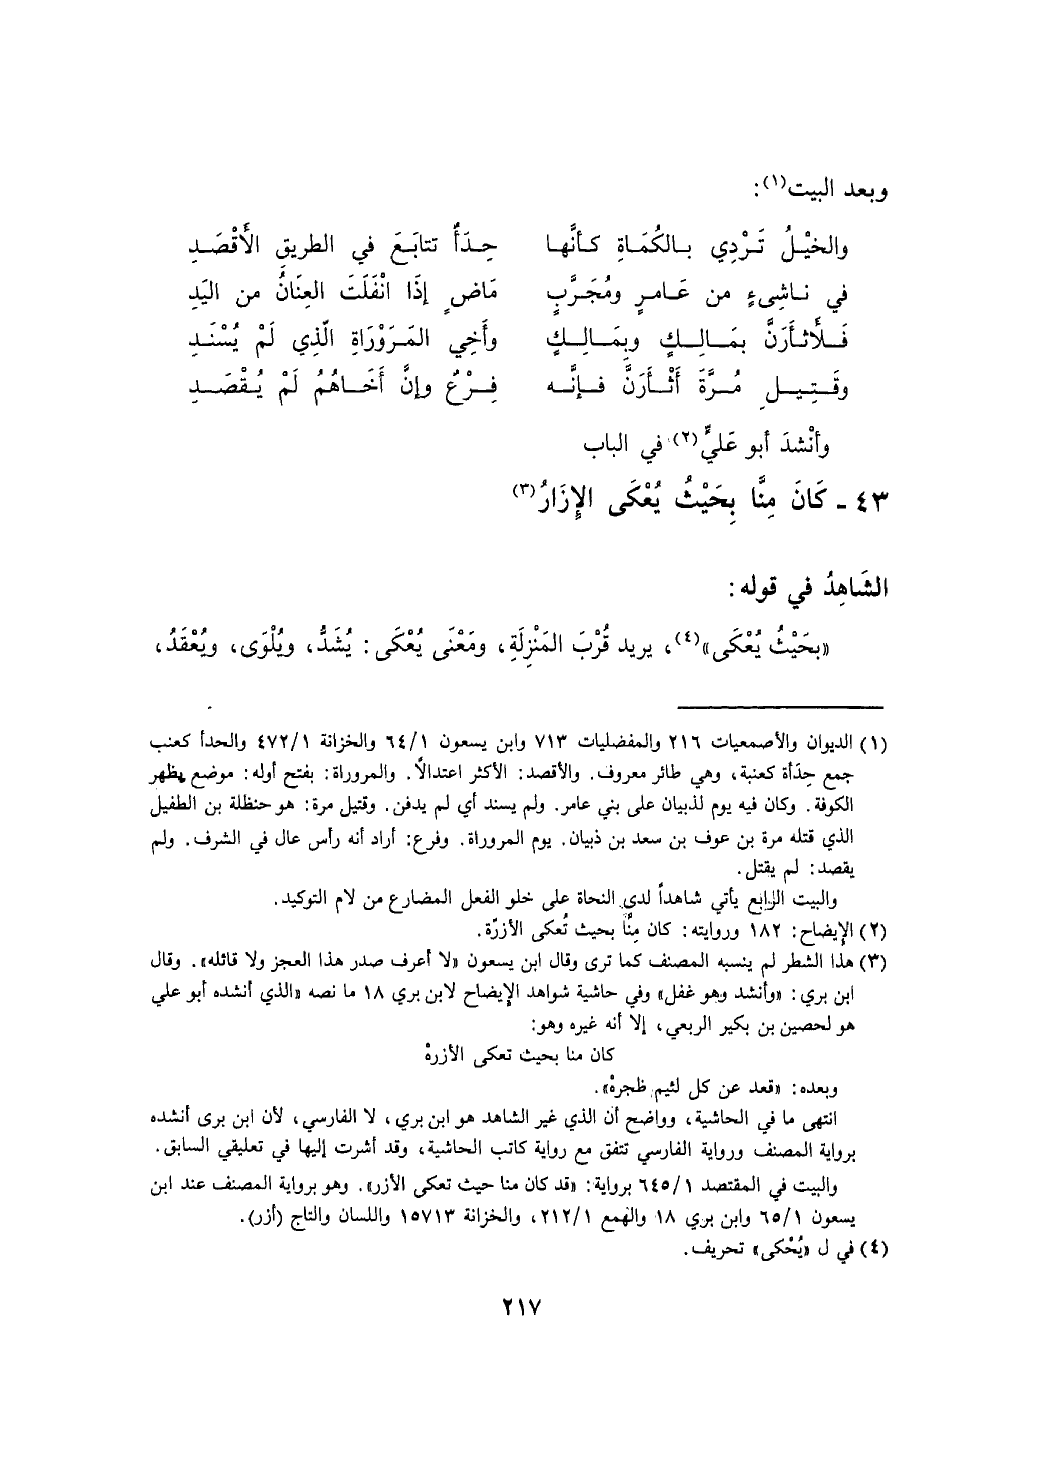 وبعد البيت(١):
والخيْلُ تَرْدِي بالكُمَاةِ كأنَّها حِدَأٌ تتابَعَ في الطريقِ الأَقْصَدِ
في ناشِىءٍ من عَامرٍ ومُجَرَّبٍ مَاضٍ إذَا انْفَلَتَ العِنَانُ من اليَدِ
فَلَأثأرَنَّ بمَالِكٍ وبِمَالِكٍ وأَخِي المَرَوْرَاةِ الّذِي لَمْ يُسْنَدِ
وقَتِيلِ مُرَّةَ أَثْأَرَنَّ فإنَّه فِرْعٌ وإنَّ أَخَاهُمُ لَمْ يُقْصَدِ
وأنْشدَ أبو عَليٍّ(٢) في الباب
٤٣ ـ كَانَ مِنَّا بِحَيْثُ يُعْكَى الإِزَارُ(٣)
الشَاهِدُ في قوله:
«بحَيْثُ يُعْكَى»(٤)، يريد قُرْبَ المَنْزِلَةِ، ومَعْنَى يُعْكَى: يُشَدُّ، ويُلْوَى، ويُعْقَدُ،
(١) الديوان والأصمعيات ٢١٦ والمفضليات ٧١٣ وابن يسعون ٦٤/١ والخزانة ٤٧٢/١ والحدأ كعنب
جمع حِدَأة كعنبة، وهي طائر معروف. والأقصد: الأكثر اعتدالاً. والمروراة: بفتح أوله: موضع بظهر
الكوفة. وكان فيه يوم لذبيان على بني عامر. ولم يسند أي لم يدفن. وقتيل مرة: هو حنظلة بن الطفيل
الذي قتله مرة بن عوف بن سعد بن ذبيان. يوم المروراة. وفرع: أراد أنه رأس عال في الشرف. ولم
يقصد: لم يقتل.
والبيت الرابع يأتي شاهداً لدى النحاة على خلو الفعل المضارع من لام التوكيد.
(٢) الإيضاح: ١٨٢ وروايته: كان مِنَّا بحيث تُعكى الأزرّة.
(٣) هذا الشطر لم ينسبه المصنف كما ترى وقال ابن يسعون «لا أعرف صدر هذا العجز ولا قائله». وقال
ابن بري: «وأنشد وهو غفل» وفي حاشية شواهد الإيضاح لابن بري ١٨ ما نصه «الذي أنشده أبو علي
هو لحصين بن بكير الربعي، إلا أنه غيره وهو:
كان منا بحيث تعكى الأزرةْ
وبعده: «قعد عن كل لئيم ظجرهْ».
انتهى ما في الحاشية، وواضح أن الذي غير الشاهد هو ابن بري، لا الفارسي، لأن ابن برى أنشده
برواية المصنف ورواية الفارسي تتفق مع رواية كاتب الحاشية، وقد أشرت إليها في تعليقي السابق.
والبيت في المقتصد ٦٤٥/١ برواية: «قد كان منا حيث تعكى الأزر». وهو برواية المصنف عند ابن
يسعون ٦٥/١ وابن بري ١٨ والهمع ٢١٢/١، والخزانة ١٥٧١٣ واللسان والتاج (أزر).
(٤) في ل «يُحْكى» تحريف.
٢١٧